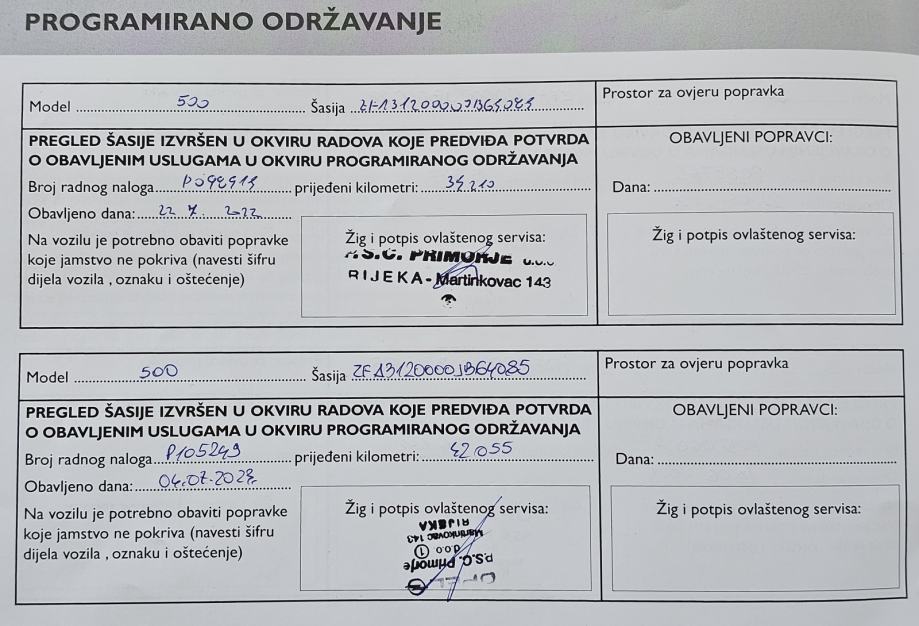 PROGRAMIRANO ODRŽAVANJE
Model 500 Šasija Prostor za ovjeru popravka
PREGLED ŠASIJE IZVRŠEN U OKVIRU RADOVA KOJE PREDVIĐA POTVRDA OBAVLJENI POPRAVCI:
O OBAVLJENIM USLUGAMA U OKVIRU PROGRAMIRANOG ODRŽAVANJA
Broj radnog naloga prijeđeni kilometri: 34.210 Dana:
Obavljeno dana: 22 7. 2022
Na vozilu je potrebno obaviti popravke
koje jamstvo ne pokriva (navesti šifru
dijela vozila , oznaku i oštećenje)
Žig i potpis ovlaštenog servisa:
P.S.C. PRIMORJE d.o.o.
RIJEKA - Martinkovac 143
Žig i potpis ovlaštenog servisa:
Model 500 Šasija ZFA3120000JB64085 Prostor za ovjeru popravka
PREGLED ŠASIJE IZVRŠEN U OKVIRU RADOVA KOJE PREDVIĐA POTVRDA OBAVLJENI POPRAVCI:
O OBAVLJENIM USLUGAMA U OKVIRU PROGRAMIRANOG ODRŽAVANJA
Broj radnog naloga P105249 prijeđeni kilometri: 42055 Dana:
Obavljeno dana:
Na vozilu je potrebno obaviti popravke
koje jamstvo ne pokriva (navesti šifru
dijela vozila , oznaku i oštećenje)
Žig i potpis ovlaštenog servisa:
OPEL
P.S.C. Primorje
d.o.o. 1
Martinkovac 143
RIJEKA
Žig i potpis ovlaštenog servisa: